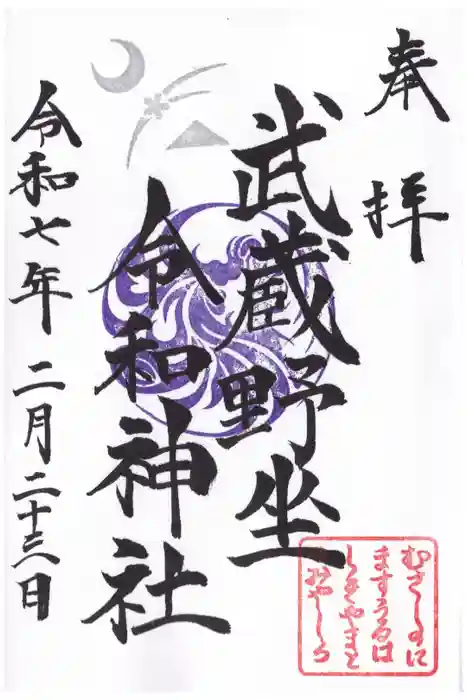 奉拝
武蔵野坐
令和神社
令和七年 二月二十三日
むさしのに
ますうるは
しきやまと
みやしろ